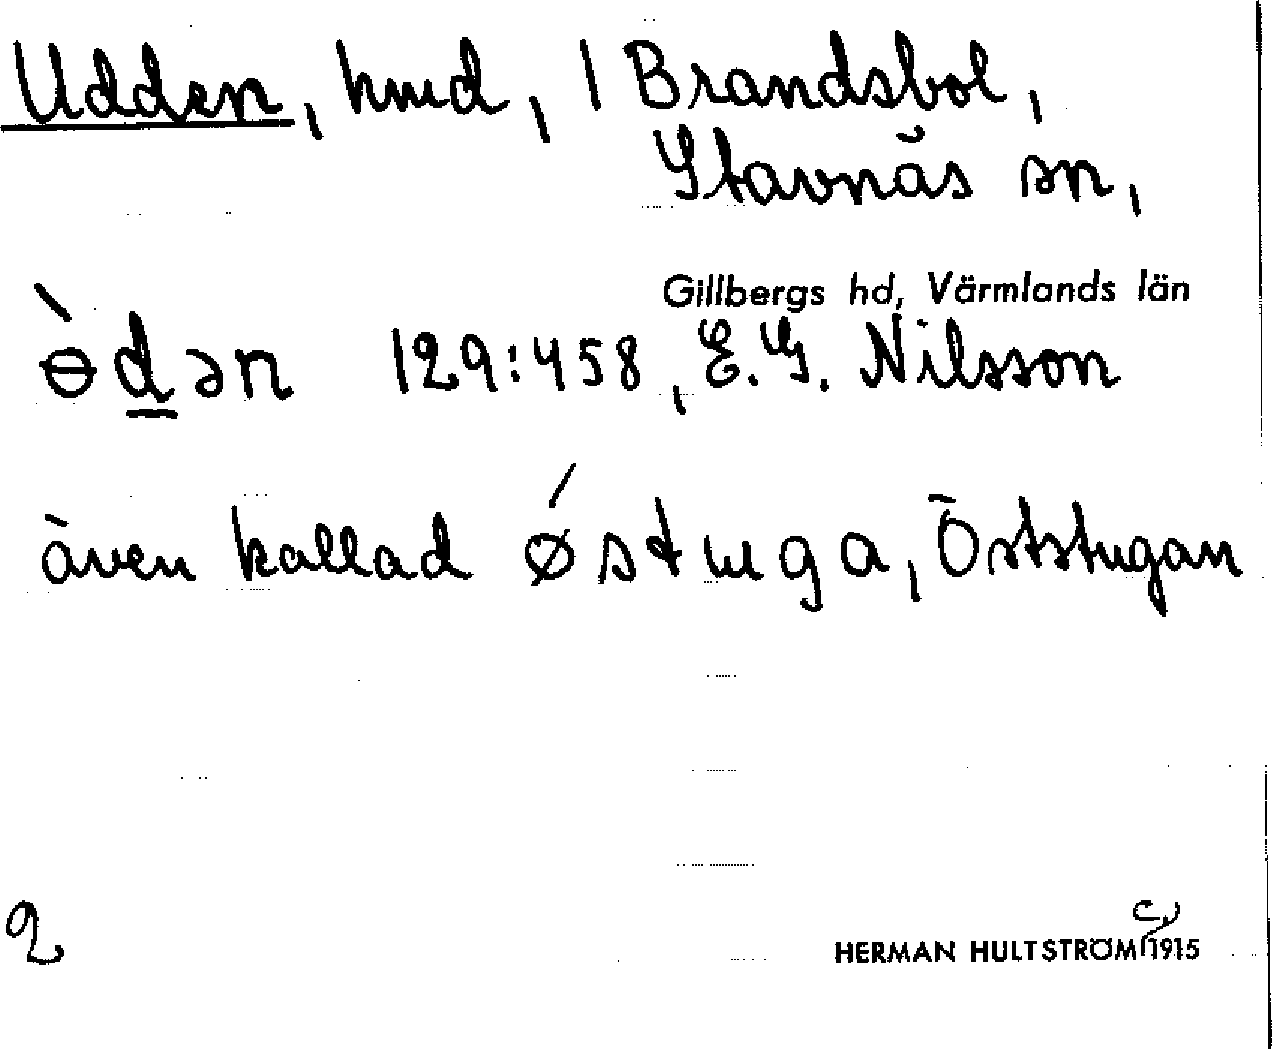 Udden, hmd, 1 Brandsbol,
Stavnäs sn,
Gillbergs hd, Värmlands län
ɵ̀d̲ən 129:458, E.G. Nilsson
även kallad ǿstuga, Öststugan
2
HERMAN HULTSTRÖM 1915